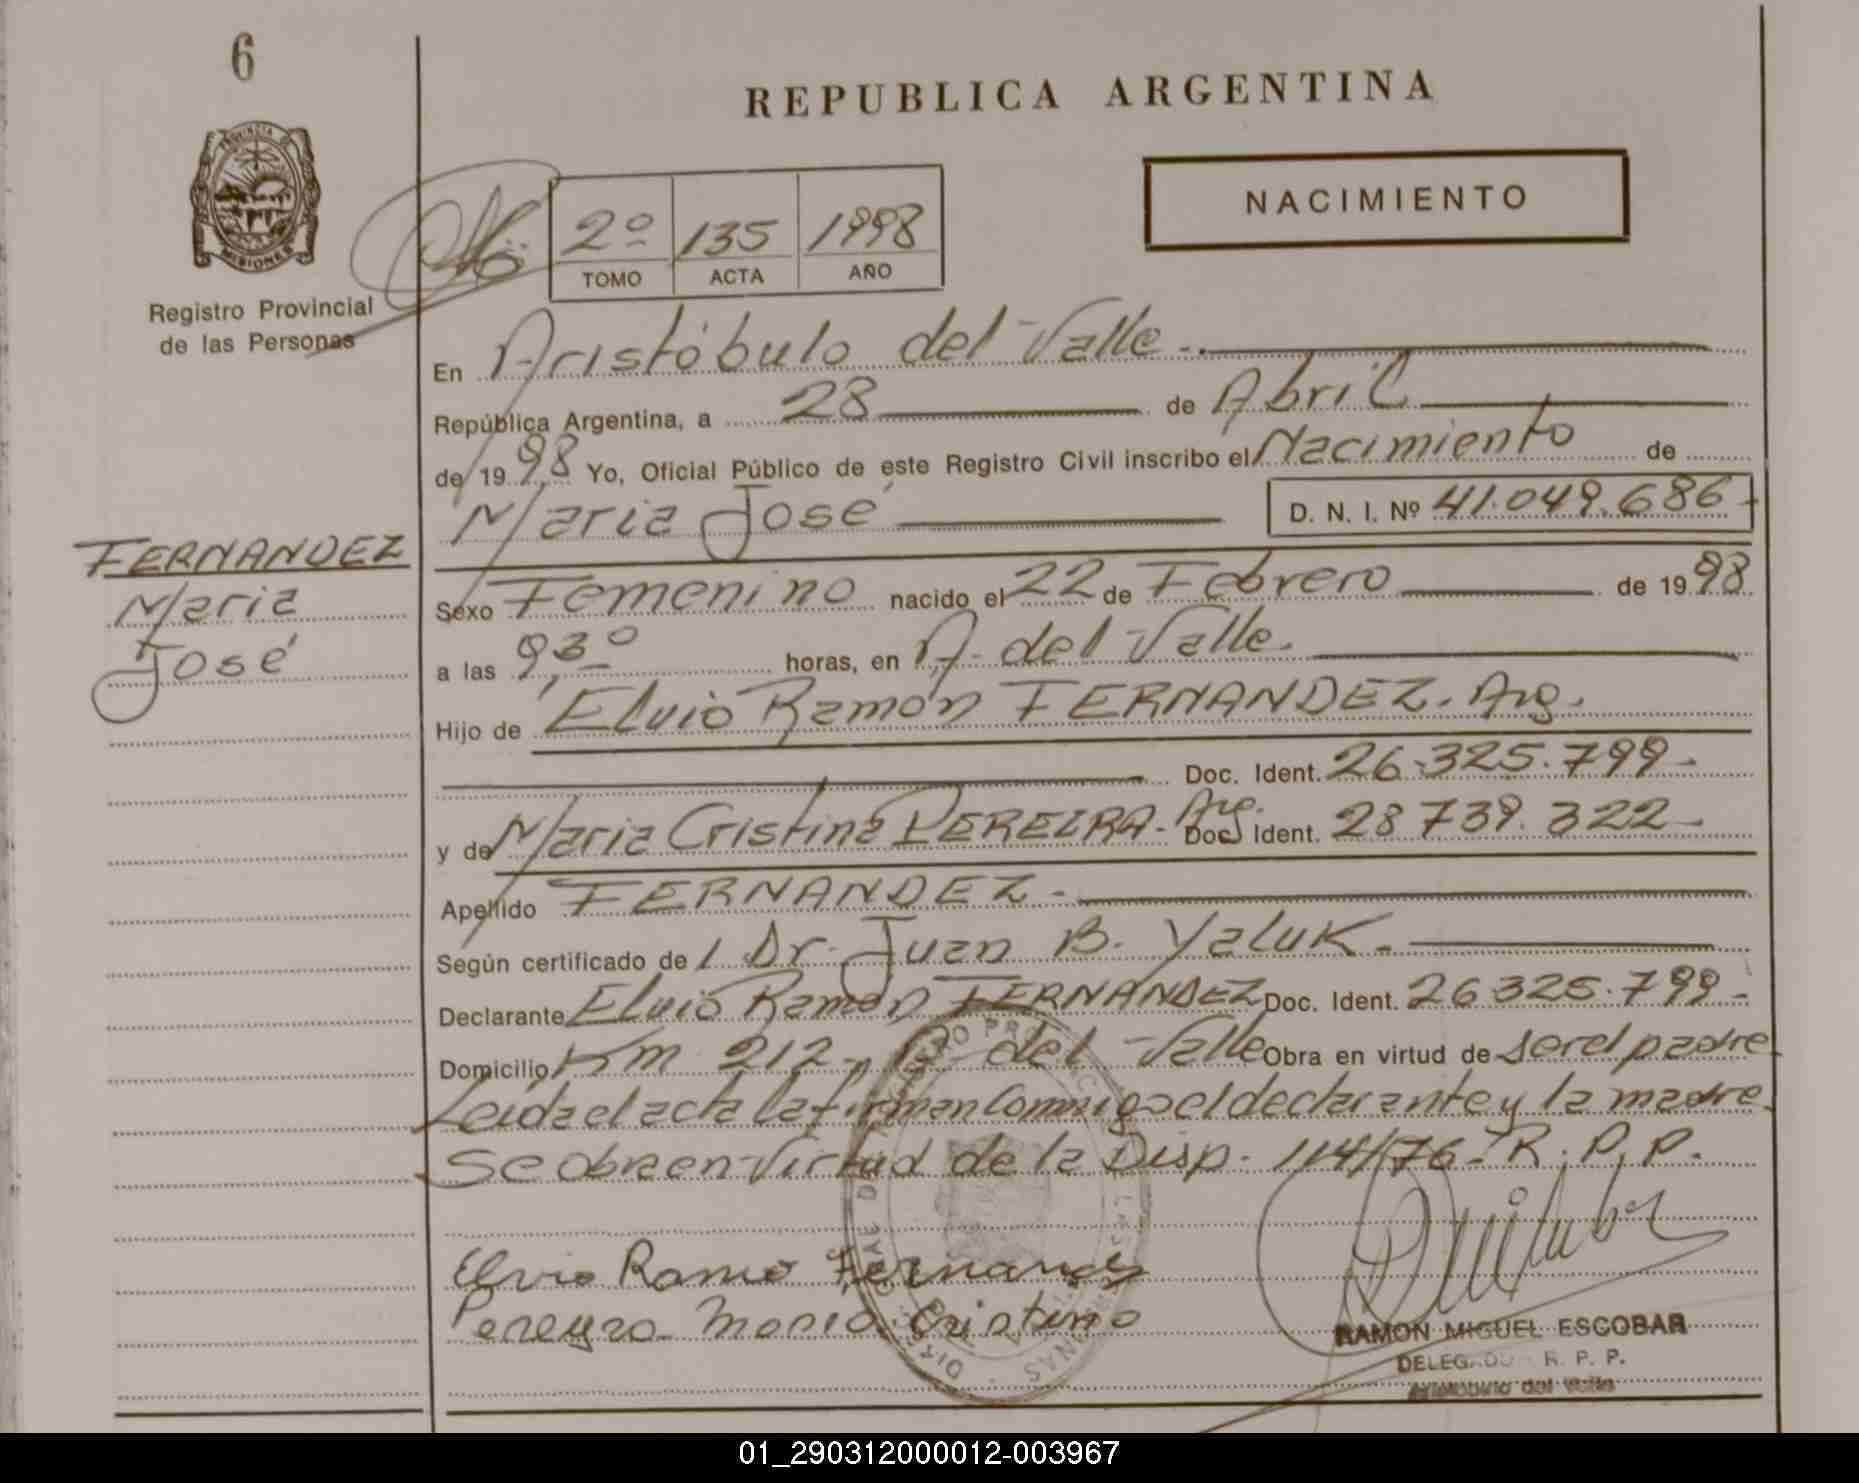 6
REPUBLICA ARGENTINA
PROVINCIA DE
MISIONES
Registro Provincial
de las Personas
2º 135 1998
TOMO ACTA AÑO
NACIMIENTO
En Aristóbulo del Valle.-
República Argentina, a 28 de Abril
de 1998 Yo, Oficial Público de este Registro Civil inscribo el Nacimiento de
Maria José D. N. I. Nº 41.049.686-
FERNANDEZ
Maria
José
Sexo Femenino nacido el 22 de Febrero de 1998
a las 9,30 horas, en A. del Valle.
Hijo de Elvio Ramón FERNANDEZ. Arg.
Doc. Ident. 26.325.799-
y de Maria Cristina PEREIRA- Arg. Doc. Ident. 28 739.322-
Apellido FERNANDEZ-
Según certificado de 1 Dr. Juan B. Yaluk-
Declarante Elvio Ramon FERNANDEZ Doc. Ident. 26 325.799-
Domicilio Km 212- A. del Valle Obra en virtud de ser el padre
Leida el acta la firman conmigo el declarante y la madre.
Se obra en virtud de la Disp. 114/76-R.P.P.
Elvio Ramo Fernandes
Pereyra Maria Cristina
RAMON MIGUEL ESCOBAR
DELEGADO R. P. P.
Aristobulo del Valle
01_290312000012-003967